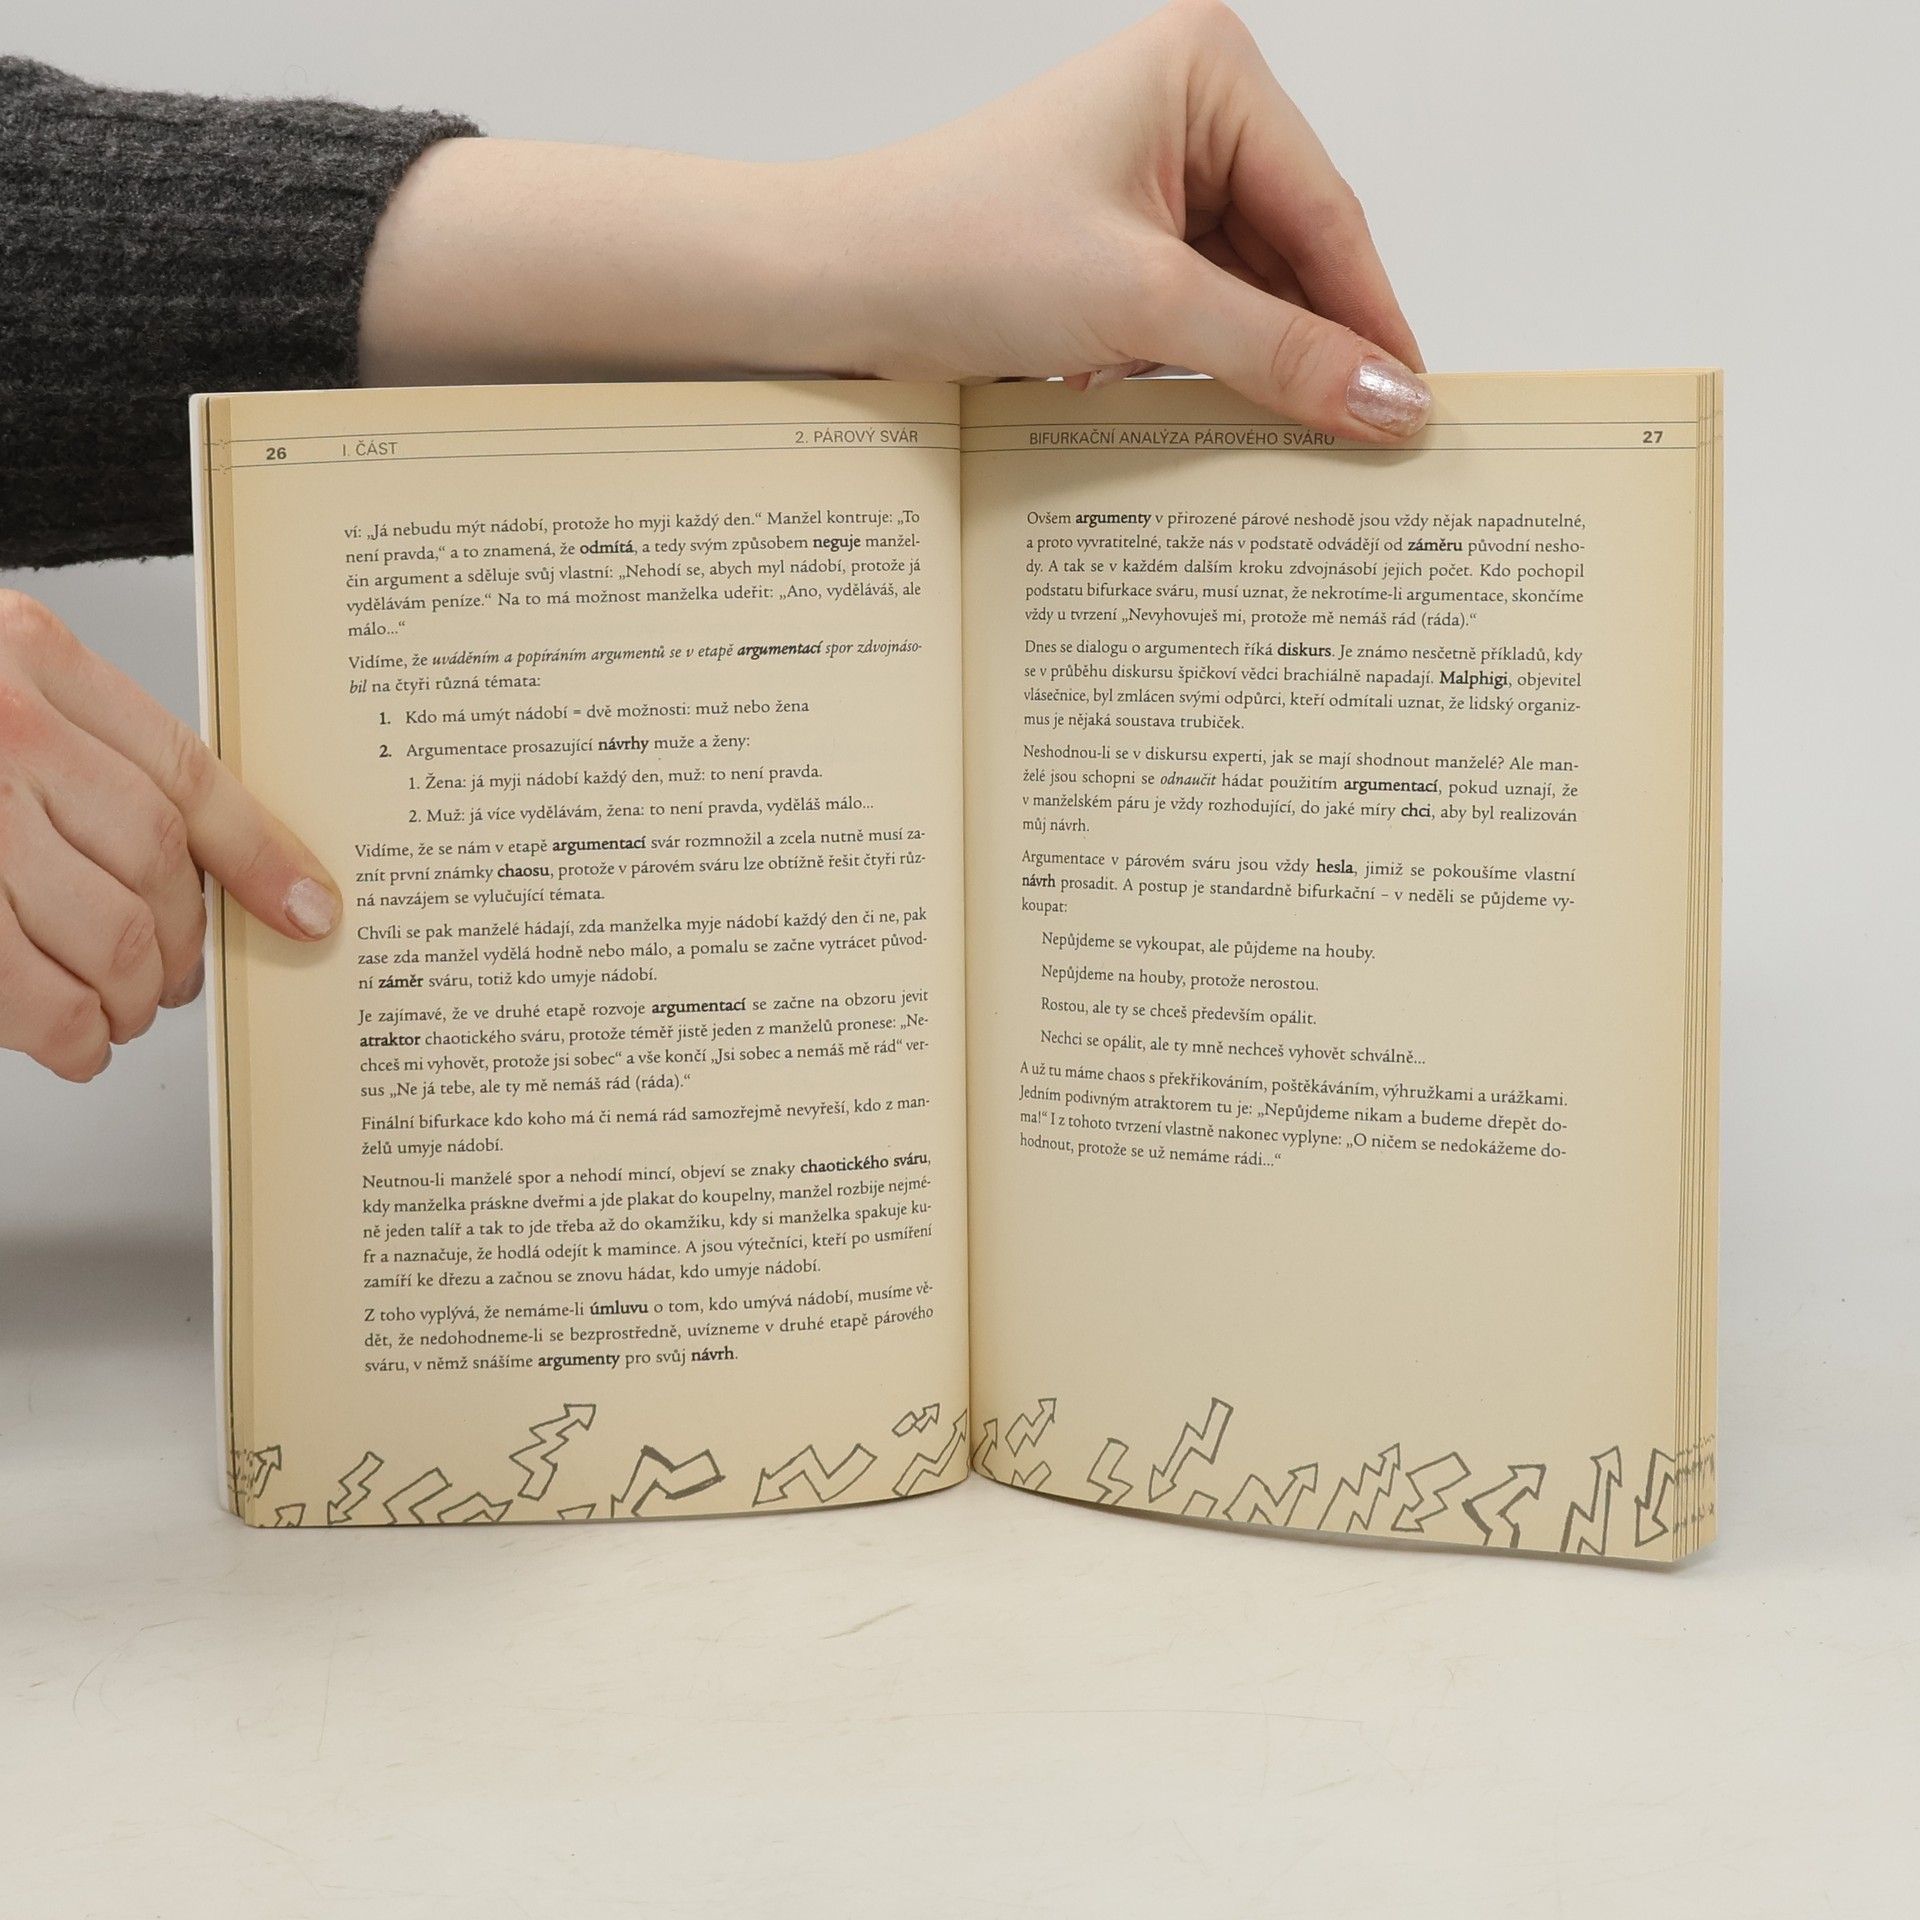 26 I. ČÁST 2. PÁROVÝ SVÁR
ví: „Já nebudu mýt nádobí, protože ho myji každý den.“ Manžel kontruje: „To
není pravda,“ a to znamená, že odmítá, a tedy svým způsobem neguje manžel-
čin argument a sděluje svůj vlastní: „Nehodí se, abych myl nádobí, protože já
vydělávám peníze.“ Na to má možnost manželka udeřit: „Ano, vyděláváš, ale
málo...“
Vidíme, že uváděním a popíráním argumentů se v etapě argumentací spor zdvojnáso-
bil na čtyři různá témata:
1. Kdo má umýt nádobí = dvě možnosti: muž nebo žena
2. Argumentace prosazující návrhy muže a ženy:
1. Žena: já myji nádobí každý den, muž: to není pravda.
2. Muž: já více vydělávám, žena: to není pravda, vyděláš málo...
Vidíme, že se nám v etapě argumentací svár rozmnožil a zcela nutně musí za-
znít první známky chaosu, protože v párovém sváru lze obtížně řešit čtyři růz-
ná navzájem se vylučující témata.
Chvíli se pak manželé hádají, zda manželka myje nádobí každý den či ne, pak
zase zda manžel vydělá hodně nebo málo, a pomalu se začne vytrácet původ-
ní záměr sváru, totiž kdo umyje nádobí.
Je zajímavé, že ve druhé etapě rozvoje argumentací se začne na obzoru jevit
atraktor chaotického sváru, protože téměř jistě jeden z manželů pronese: „Ne-
chceš mi vyhovět, protože jsi sobec“ a vše končí „Jsi sobec a nemáš mě rád“ ver-
sus „Ne já tebe, ale ty mě nemáš rád (ráda).“
Finální bifurkace kdo koho má či nemá rád samozřejmě nevyřeší, kdo z man-
želů umyje nádobí.
Neutnou-li manželé spor a nehodí mincí, objeví se znaky chaotického sváru,
kdy manželka práskne dveřmi a jde plakat do koupelny, manžel rozbije nejmé-
ně jeden talíř a tak to jde třeba až do okamžiku, kdy si manželka spakuje ku-
fr a naznačuje, že hodlá odejít k mamince. A jsou výtečníci, kteří po usmíření
zamíří ke dřezu a začnou se znovu hádat, kdo umyje nádobí.
Z toho vyplývá, že nemáme-li úmluvu o tom, kdo umývá nádobí, musíme vě-
dět, že nedohodneme-li se bezprostředně, uvízneme v druhé etapě párového
sváru, v němž snášíme argumenty pro svůj návrh.
BIFURKAČNÍ ANALÝZA PÁROVÉHO SVÁRU 27
Ovšem argumenty v přirozené párové neshodě jsou vždy nějak napadnutelné,
a proto vyvratitelné, takže nás v podstatě odvádějí od záměru původní nesho-
dy. A tak se v každém dalším kroku zdvojnásobí jejich počet. Kdo pochopil
podstatu bifurkace sváru, musí uznat, že nekrotíme-li argumentace, skončíme
vždy u tvrzení „Nevyhovuješ mi, protože mě nemáš rád (ráda).“
Dnes se dialogu o argumentech říká diskurs. Je známo nesčetně příkladů, kdy
se v průběhu diskursu špičkoví vědci brachiálně napadají. Malphigi, objevitel
vlásečnice, byl zmlácen svými odpůrci, kteří odmítali uznat, že lidský organiz-
mus je nějaká soustava trubiček.
Neshodnou-li se v diskursu experti, jak se mají shodnout manželé? Ale man-
želé jsou schopni se odnaučit hádat použitím argumentací, pokud uznají, že
v manželském páru je vždy rozhodující, do jaké míry chci, aby byl realizován
můj návrh.
Argumentace v párovém sváru jsou vždy hesla, jimiž se pokoušíme vlastní
návrh prosadit. A postup je standardně bifurkační – v neděli se půjdeme vy-
koupat:
Nepůjdeme se vykoupat, ale půjdeme na houby.
Nepůjdeme na houby, protože nerostou.
Rostou, ale ty se chceš především opálit.
Nechci se opálit, ale ty mně nechceš vyhovět schválně...
A už tu máme chaos s překřikováním, poštěkáváním, výhružkami a urážkami.
Jedním podivným atraktorem tu je: „Nepůjdeme nikam a budeme dřepět do-
ma!“ I z tohoto tvrzení vlastně nakonec vyplyne: „O ničem se nedokážeme do-
hodnout, protože se už nemáme rádi...“